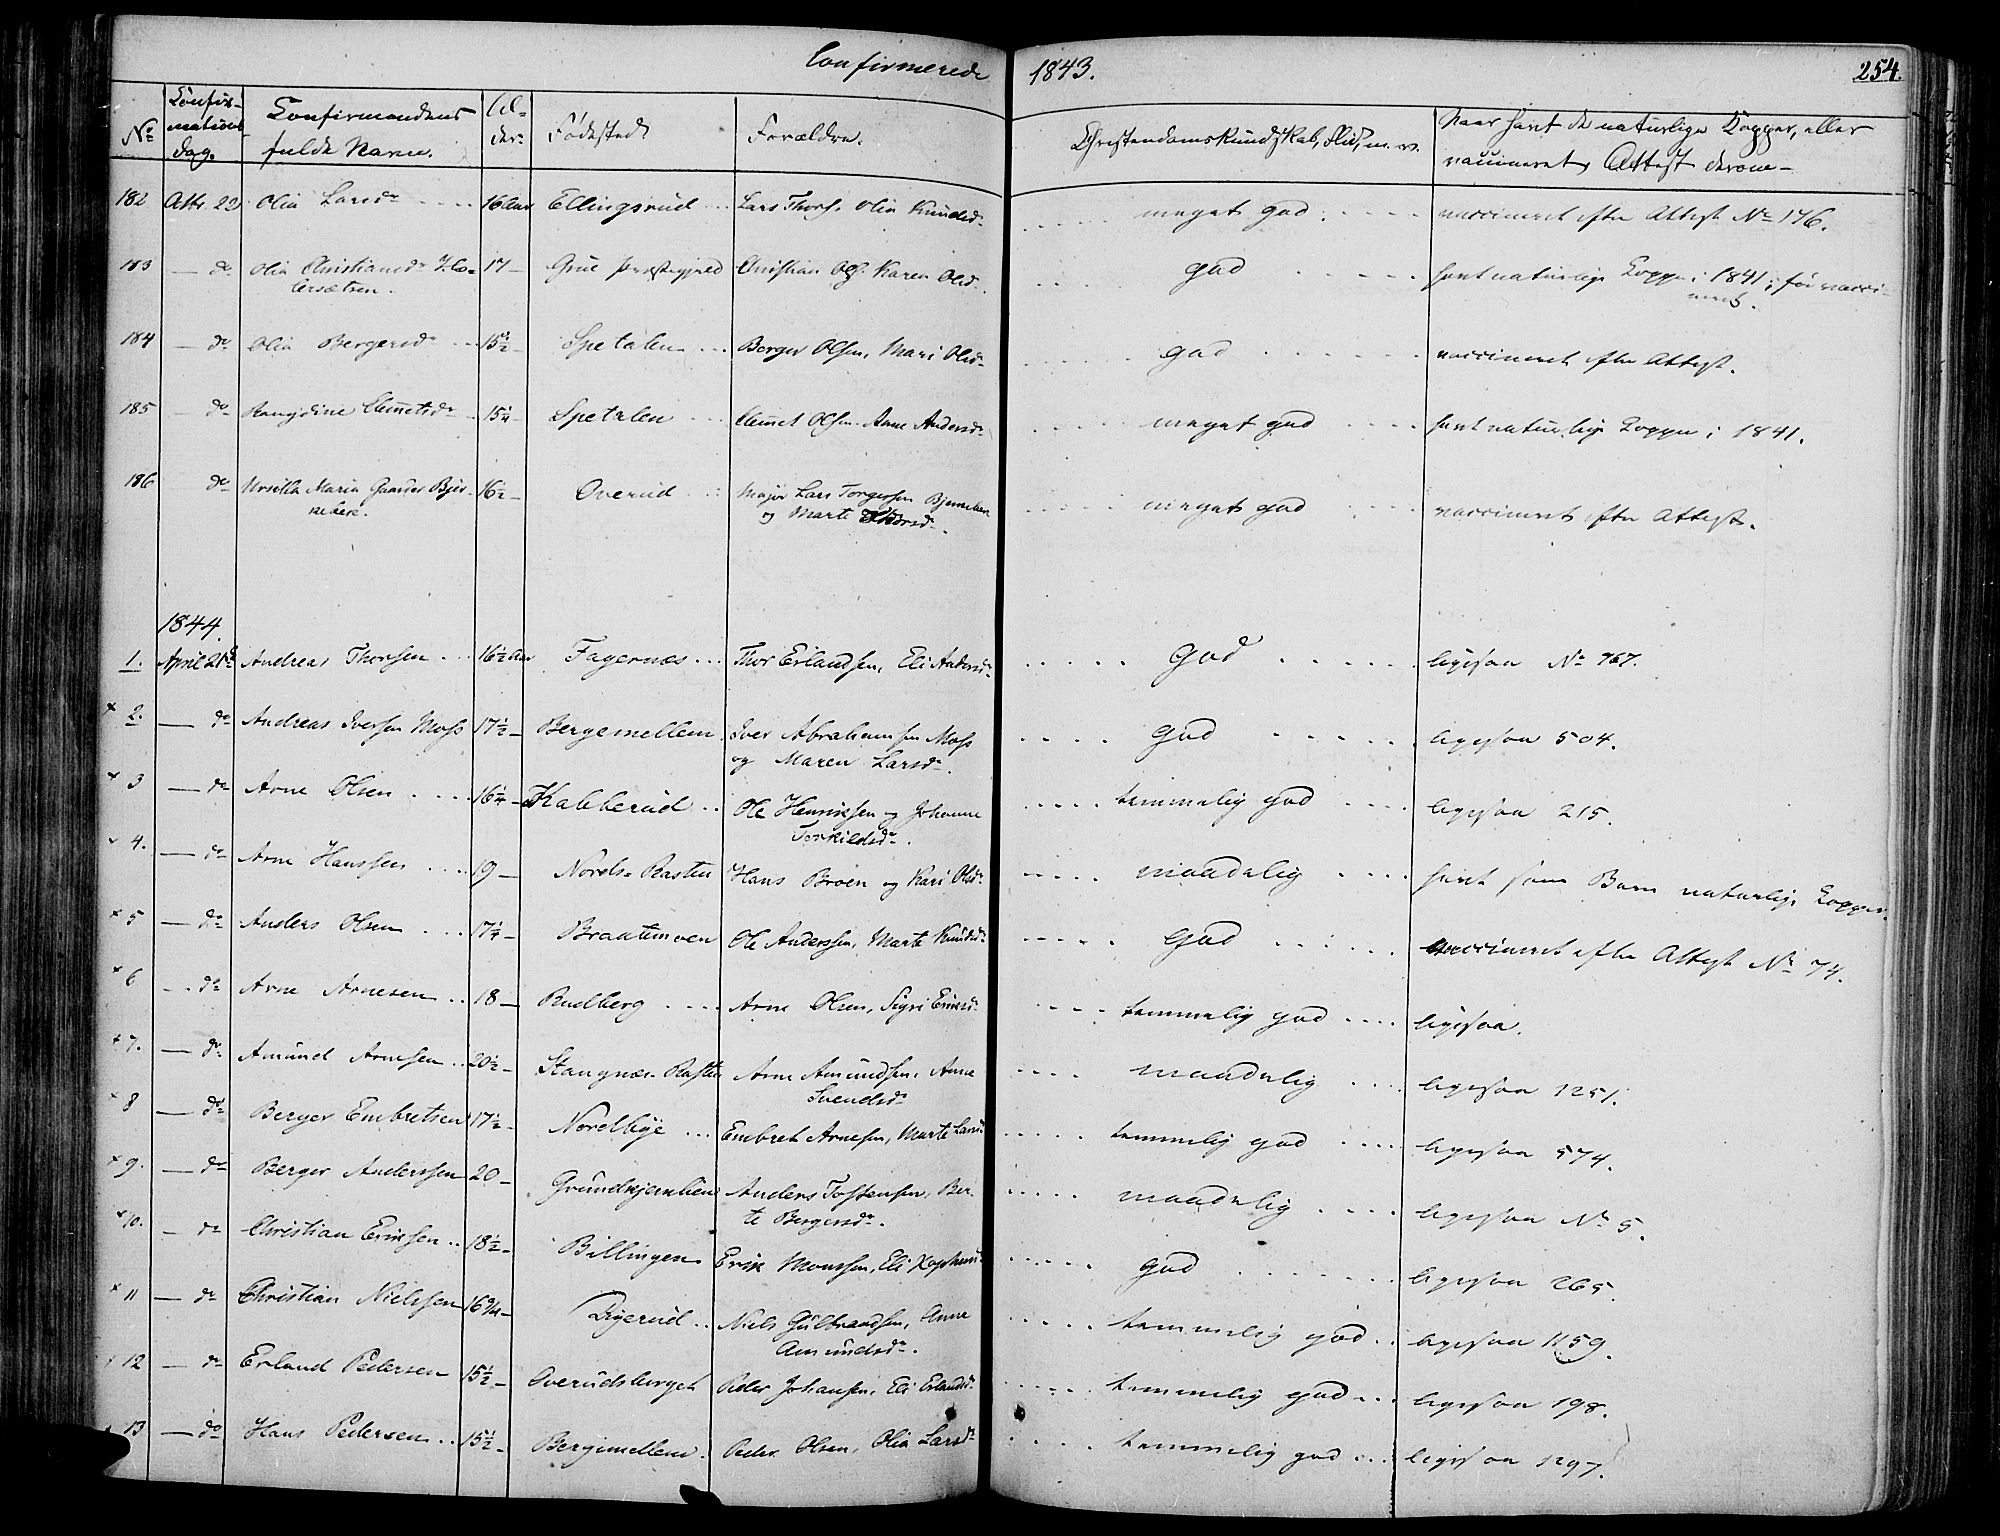 Confirmerede 1843. 254.
No Confirmations Dag. Confirmandens fulde Navn. Alder. Fødested Forældre. Christendomskundskab, Flid, m. v. Naar havt de naturlige Kopper, eller vaccineret, Attest derom
182 Octbr. 22 Olia Larsdr 16 Aar Ellingsrud Lars Thors. Olia Knudsdr meget god vaccineret efter Attest No 176.
183 — do Olia Christiansdr 17 — Grue Præstegjeld Christian Ols. Karen Olsdr. god havt naturlige Kopper i 1841; før vaccineret.
184 — do Olia Bergersdr 15½ — Spetalen Berger Olsen, Mari Olsdr god vaccineret efter Attest.
185 — do Rangdine Clemetsdr 15¼ — Spetalen Clemet Olsen. Anne Andersdr meget god havt naturlige Kopper i 1841.
186 do Ursilla Maria Gaarder Bjerkebek. 16½ — Overud Major Lars Torgersen
og Marte Thorsdr. meget god vaccineret efter Attest.
1844.
1. April 21de Andreas Thorsen 16½ Aar Fagernæs Thor Erlandsen, Eli Andersdr god ligesaa No 767.
× 2. — do Andreas Iversen Moss 17½ — Bergemellem Iver Abrahamsen Moss
og Maren Larsdr. god ligesaa 504.
× 3 — do Arne Olsen 16¼ — Kabberud Ole Henriksen og Johanne
Torkildsdr. temmelig god ligesaa 215.
4. — do Arne Hanssen 19 — Nordre Rasten Hans Broen og Kari Olsdr. maadelig havt som Barn naturlige Kopper.
× 5 — do Anders Olsen 17¼ — Braatemoen Ole Anderssen, Marte Knudsdr god vaccineret efter Attest No 74.
× 6 — do Arne Arnesen 18 — Rudberg Arne Olsen, Sigri Eriksdr temmelig god ligesaa.
× 7. — do Amund Arnesen 20½ — Stangnæs-Rasten Arne Amundsen, Anne
Svendsdr maadelig ligesaa 1251.
× 8 — do Berger Embretsen 17½ — Nordbye Embret Arnesen, Marte Larsdr temmelig god ligesaa 574.
× 9. — do Berger Anderssen 20 — Grundtjernlien Anders Tostensen, Berte Bergersdr. maadelig ligesaa No 5.
× 10. — do Christian Eriksen 18½ — Billingen Erik Monssen, Eli god ligesaa 265.
× 11 — do Christian Nielssen 16¾ — Digerud Niels Gulbrandsen, Anne
Amundsdr. temmelig god ligesaa 1159.
12 — do Erland Pedersen 15½ — Overudsberget Peder Johansen, Eli Erlandsdr temmelig god ligesaa 198.
13 — do Hans Pedersen 15½ — Bergemellem. Peder Olsen, Olia Larsdr temmelig god ligesaa 1297.